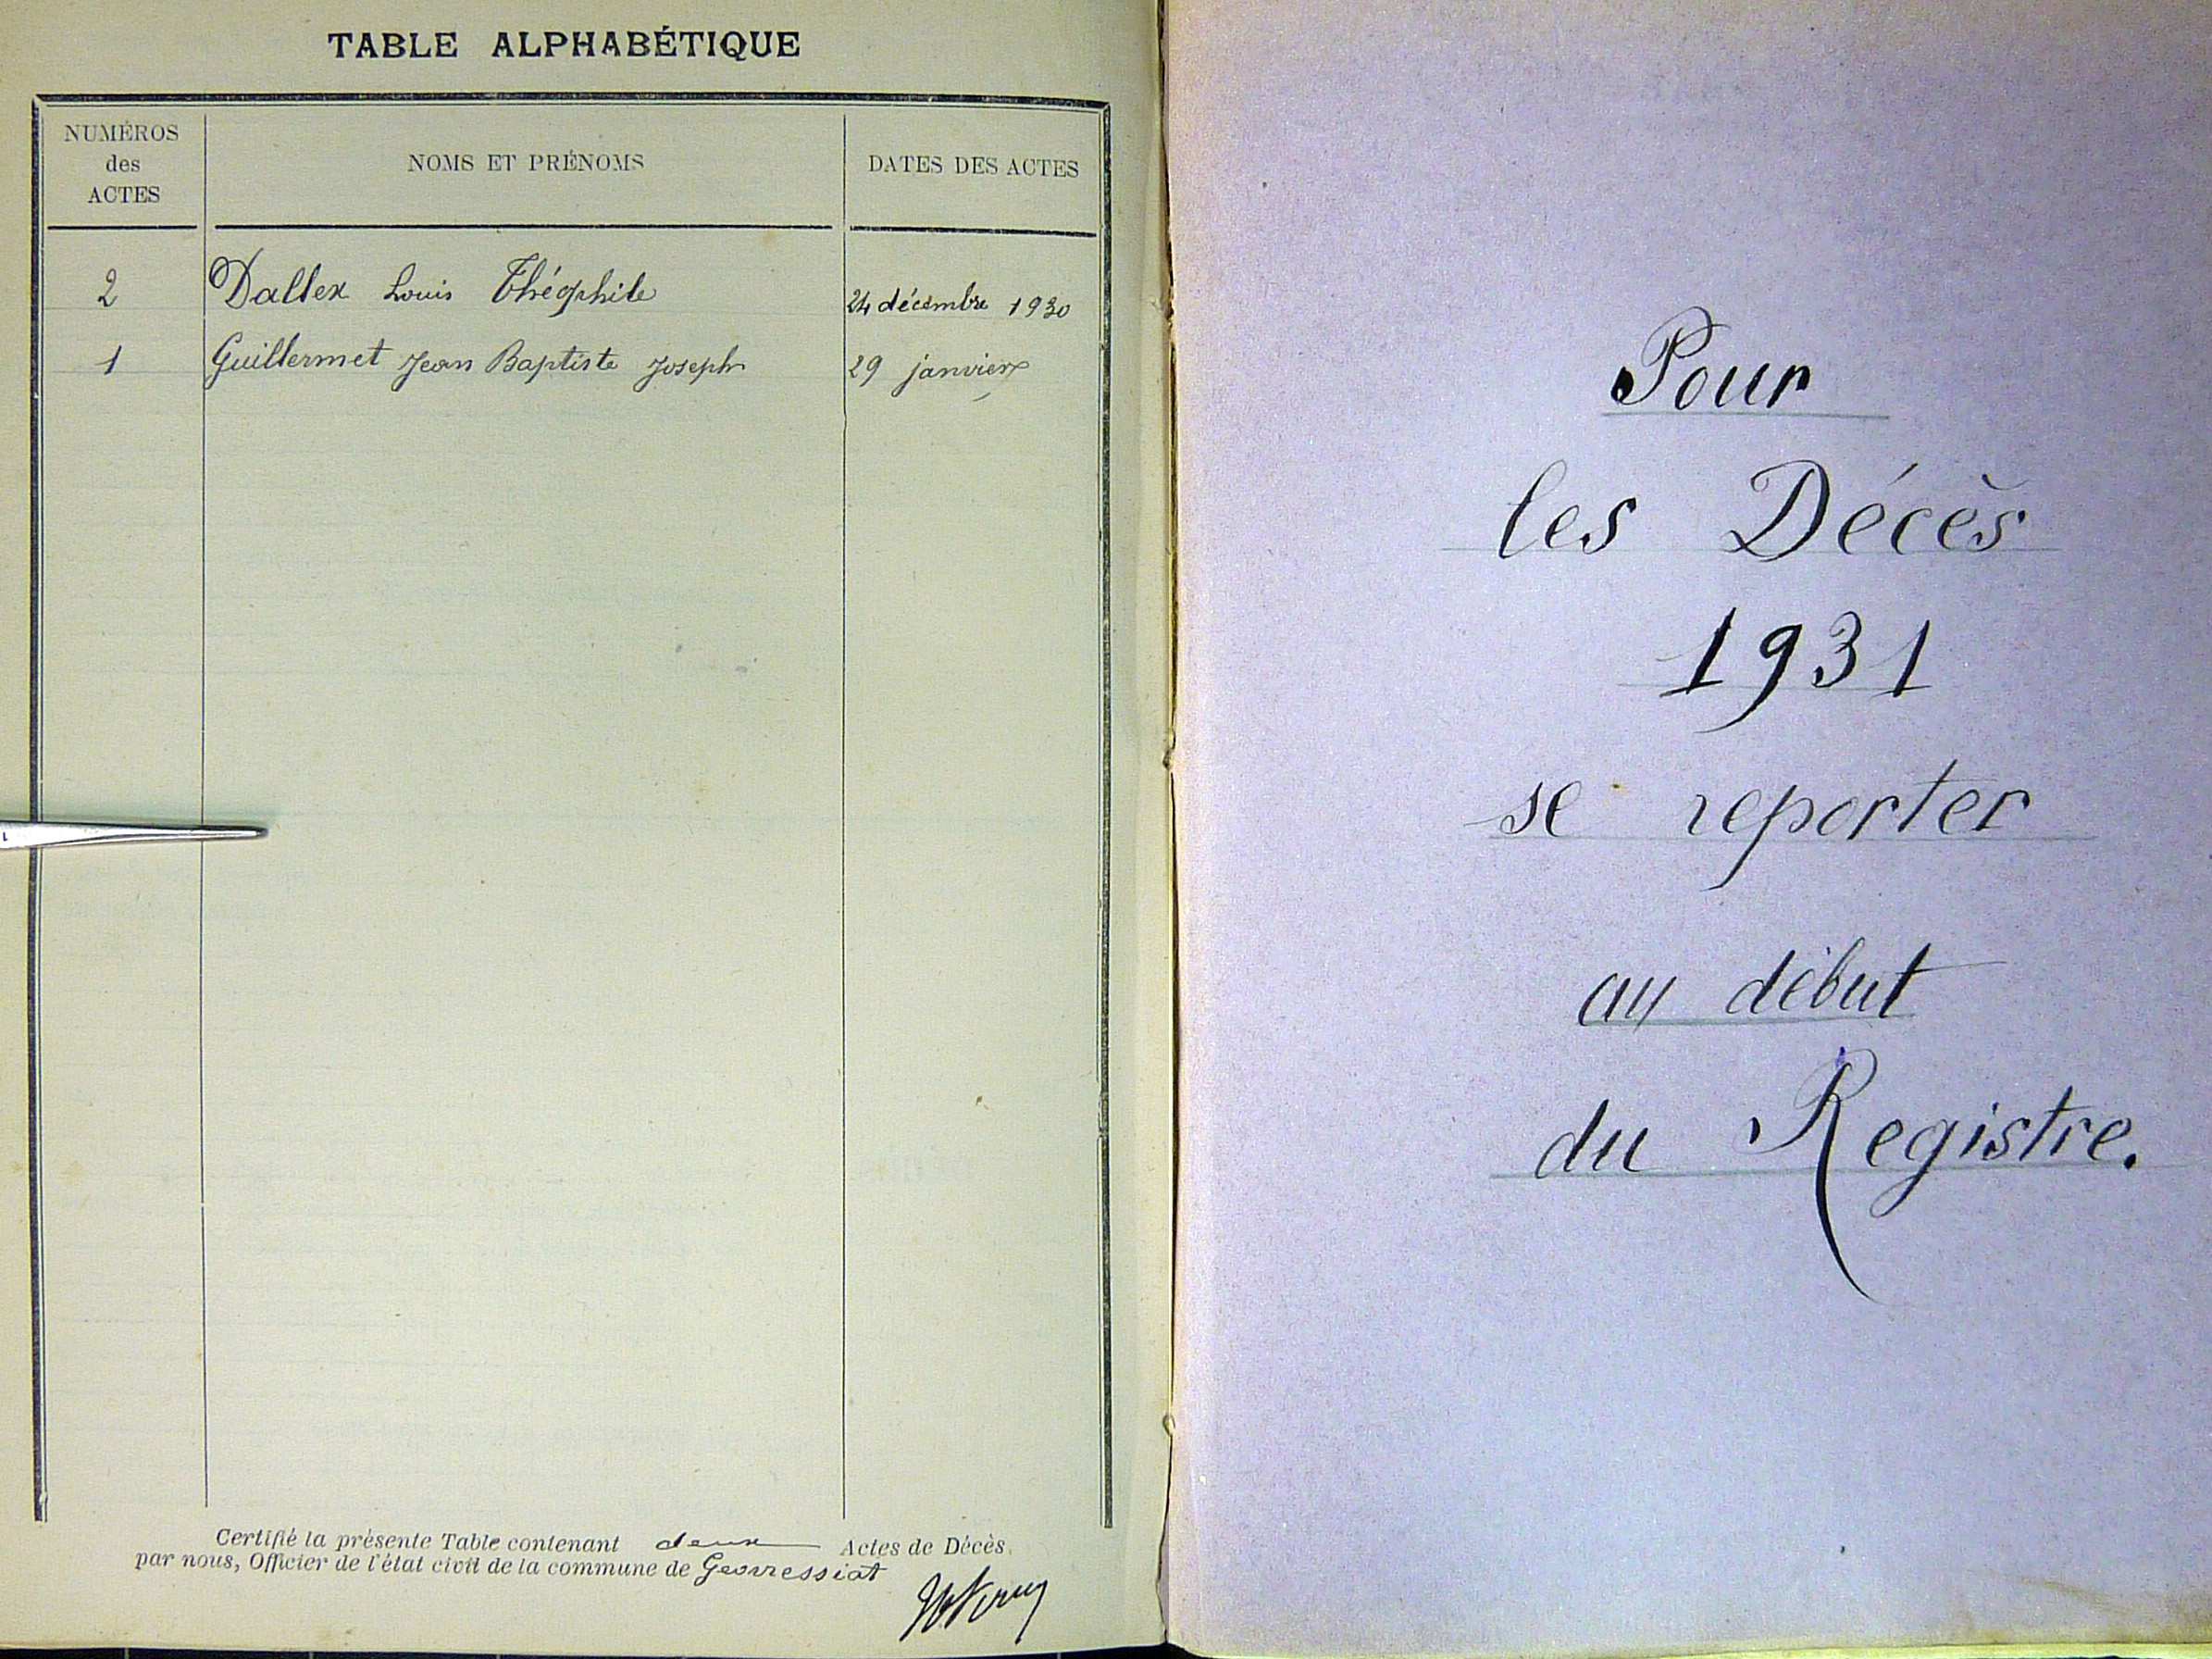 TABLE ALPHABÉTIQUE
NUMÉROS
des
ACTES
NOMS ET PRÉNOMS
DATES DES ACTES
2 Dallex Louis Théophile 24 décembre 1930
1 Guillermet Jean Baptiste Joseph 29 janvier
Certifié la présente Table contenant deux Actes de Décès
par nous, Officier de l'état civil de la commune de Geovressiat
Pour
les Décès
1931
se reporter
au début
du Registre.